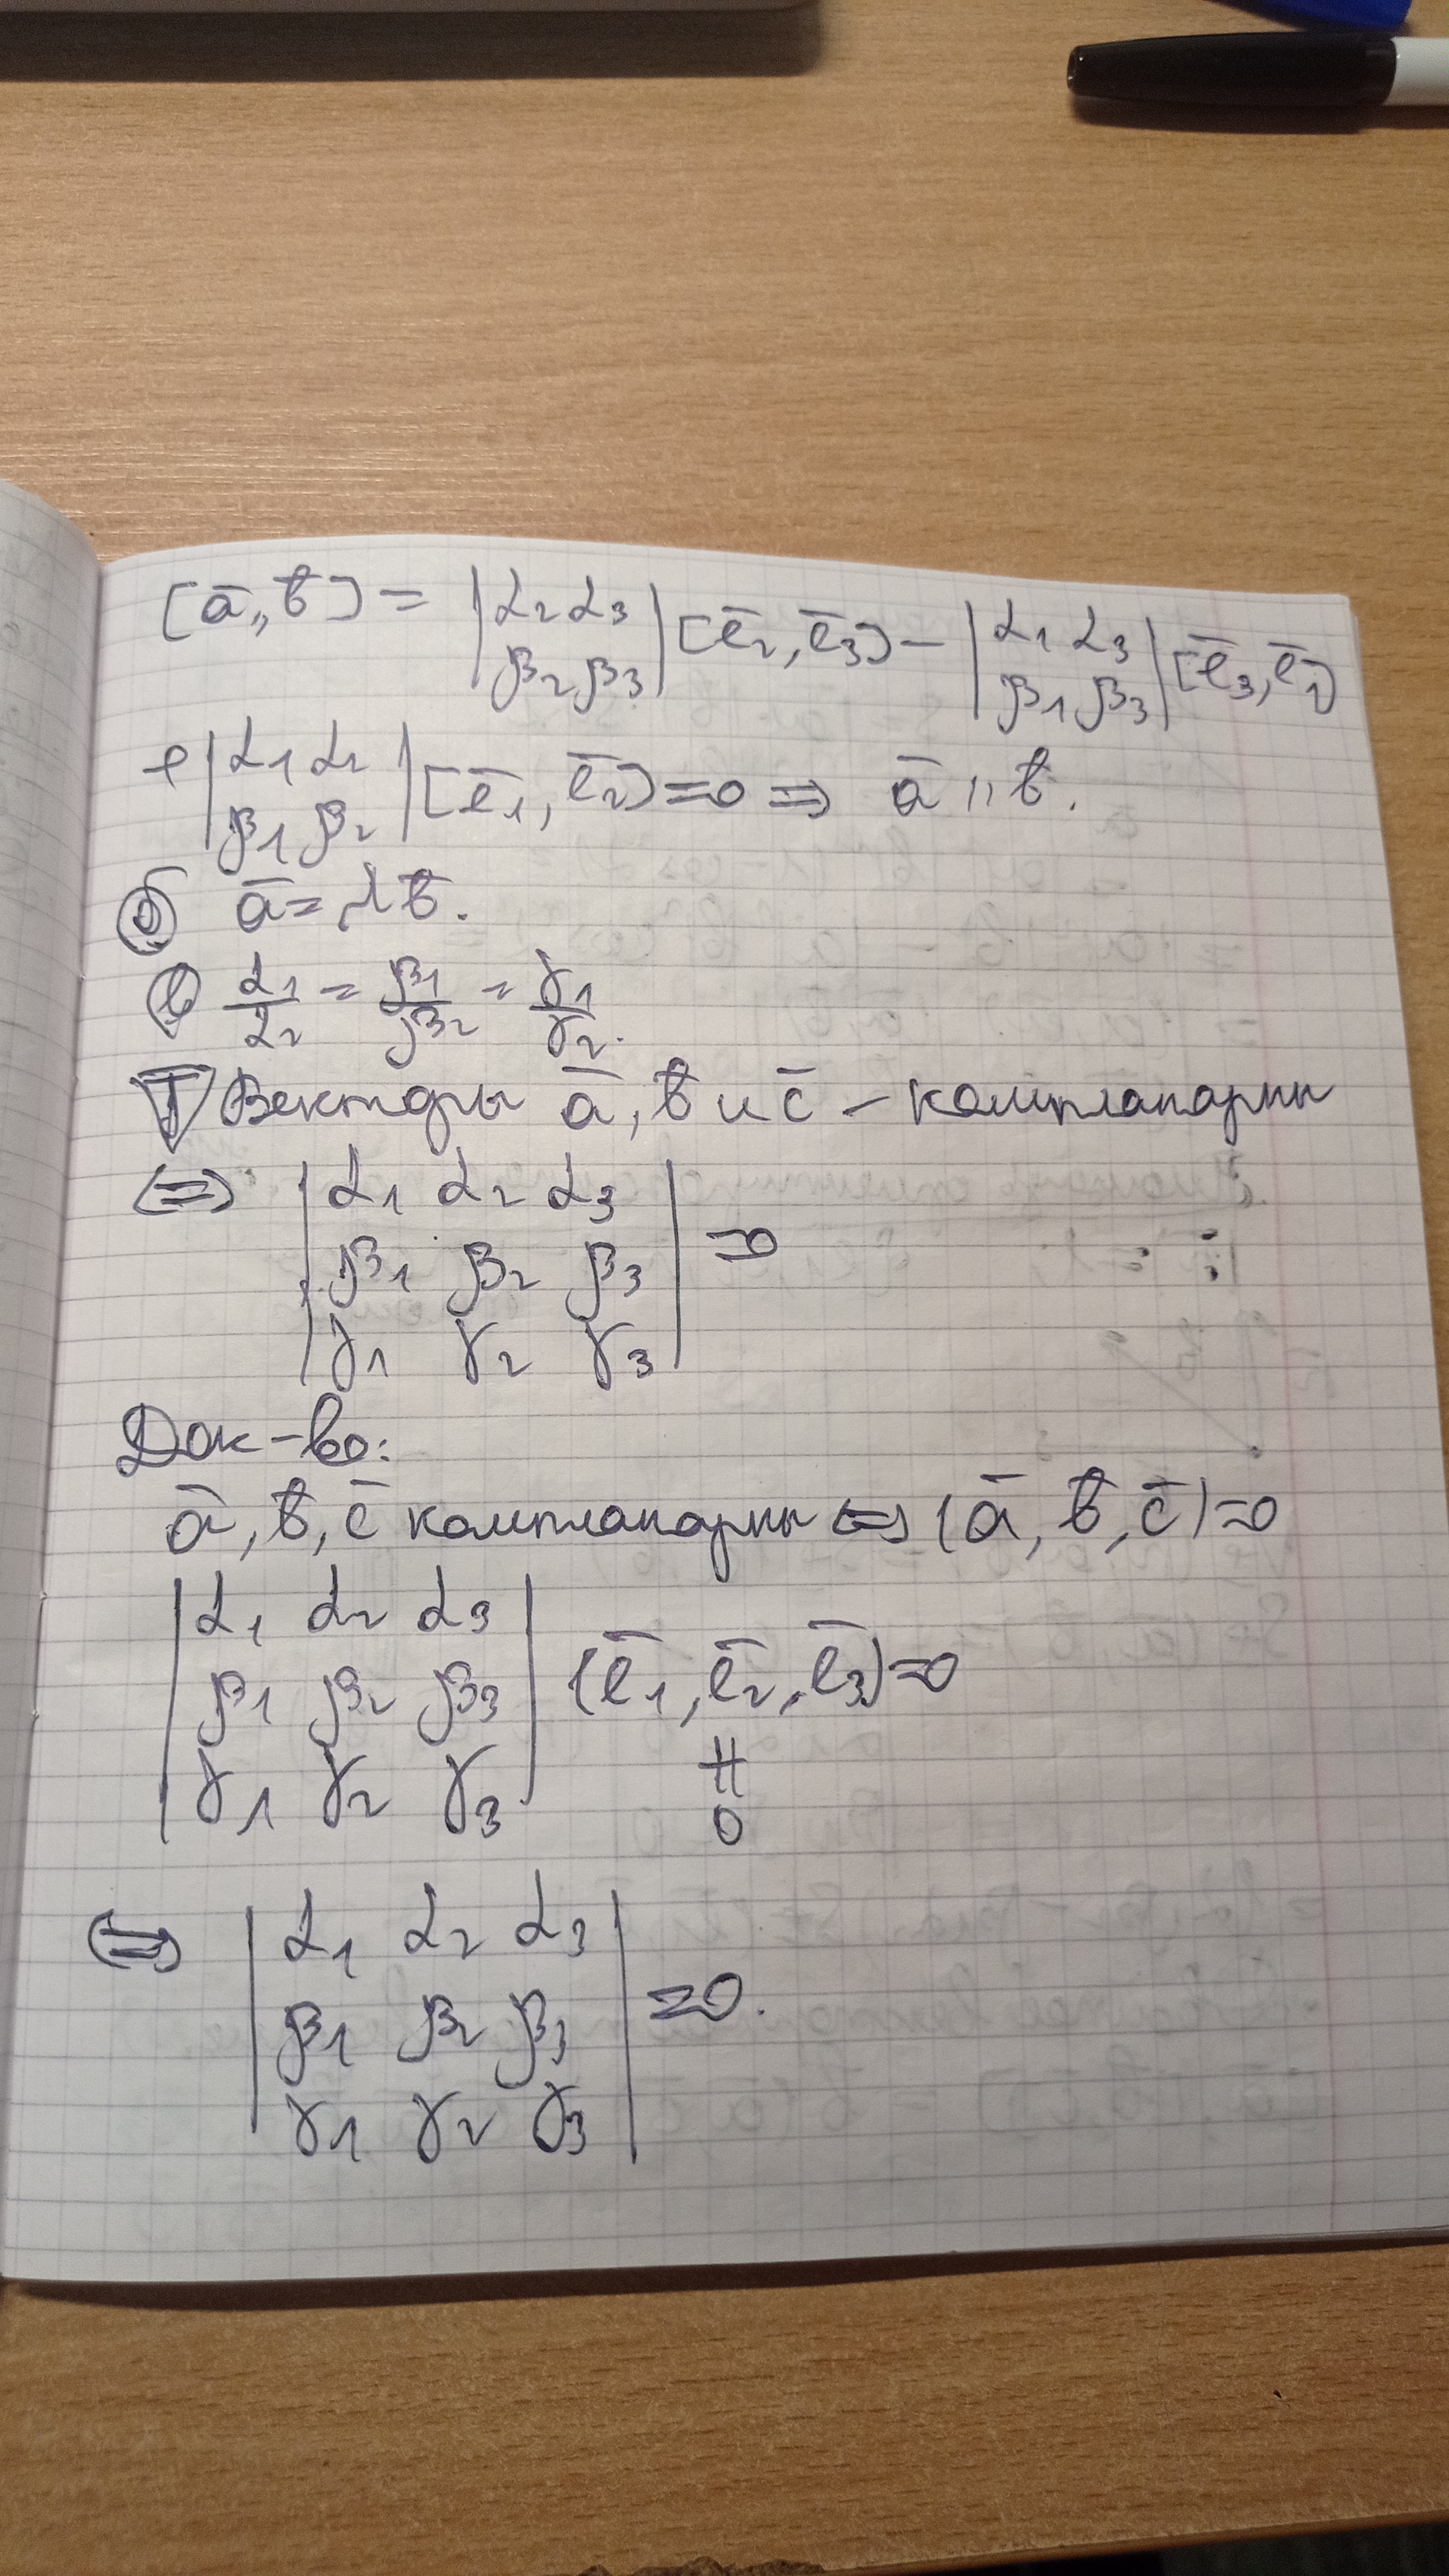 [ā, b̄] = |α₂ α₃; β₂ β₃| [ē₂, ē₃] − |α₁ α₃; β₁ β₃| [ē₃, ē₁]
+ |α₁ α₂; β₁ β₂| [ē₁, ē₂] = 0 ⇒ ā ∥ b̄.
б ā = λb̄.
в α₁/α₂ = β₁/β₂ = γ₁/γ₂.
Т Векторы ā, b̄ и c̄ – компланарны
⇔ |α₁ α₂ α₃
β₁ β₂ β₃
γ₁ γ₂ γ₃| = 0
Док-во:
ā, b̄, c̄ компланарны ⇔ (ā, b̄, c̄) = 0
|α₁ α₂ α₃
β₁ β₂ β₃
γ₁ γ₂ γ₃| (ē₁, ē₂, ē₃) = 0
≠
0
⇔ |α₁ α₂ α₃
β₁ β₂ β₃
γ₁ γ₂ γ₃| = 0.